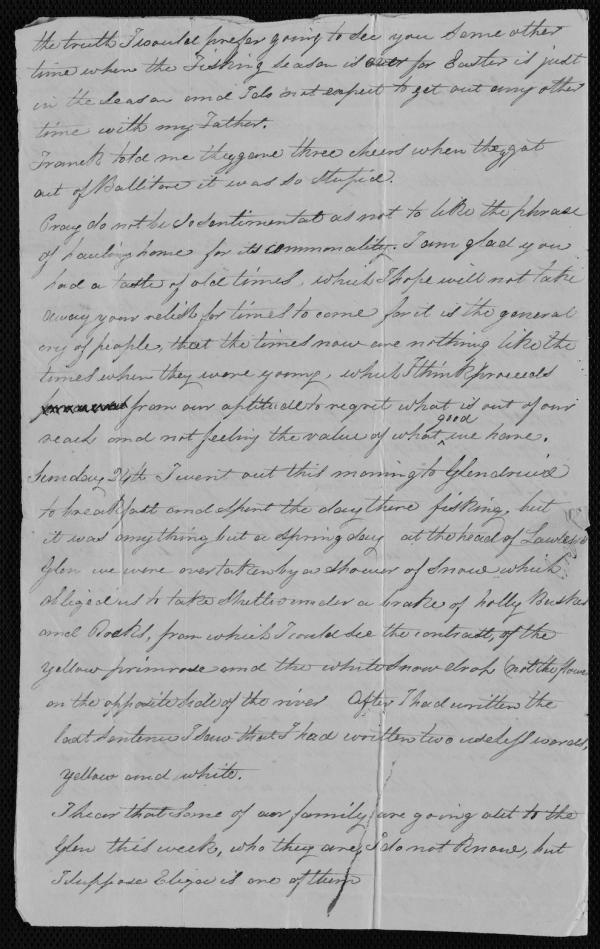 the truth I would prefer going to see you some other
time when the Fishing season is over for Easter is just
in the season and I do not expect to get out any other
time with my Father.
Franck told me they gave three cheers when they got
out of Ballitore it was so stupid.
Pray do not be so sentimental as not to like the phrase
of hauling home for its commonality. I am glad you
had a taste of old times, which I hope will not take
away your relish for times to come for it is the general
cry of people, that the times now are nothing like the
times when they were young, which I think proceeds
from our aptitude to regret what is out of our
reach and not feeling the value of what good we have.
Sunday 24th I went out this morning to Glendruid
to breakfast and spent the day there fishing, but
it was anything but a spring day at the head of Lawless's
Glen we were overtaken by a shower of snow which
obliged us to take shelter under a brake of holly Bushes
and Rocks, from which I could see the contrast, of the
yellow primrose and the white snow drop (not the flower
on the opposite side of the river After I had written the
last sentence I saw that I had written two useless words,
yellow and white.
I hear that some of our family are going out to the
Glen this week, who they are, I do not know, but
I suppose Eliza is one of them